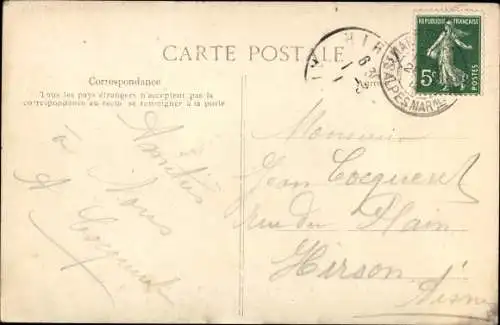 CARTE POSTALE
Correspondance
Tous les pays étrangers n'acceptent pas la
correspondance au recto se renseigner à la poste
Amitiés
à Tous
A Cocquent
Monsieur
Jean Cocquent
rue du Plain
Hirson
Aisne
HIR
ALPES MAR
REPUBLIQUE FRANÇAISE
5c
POSTES